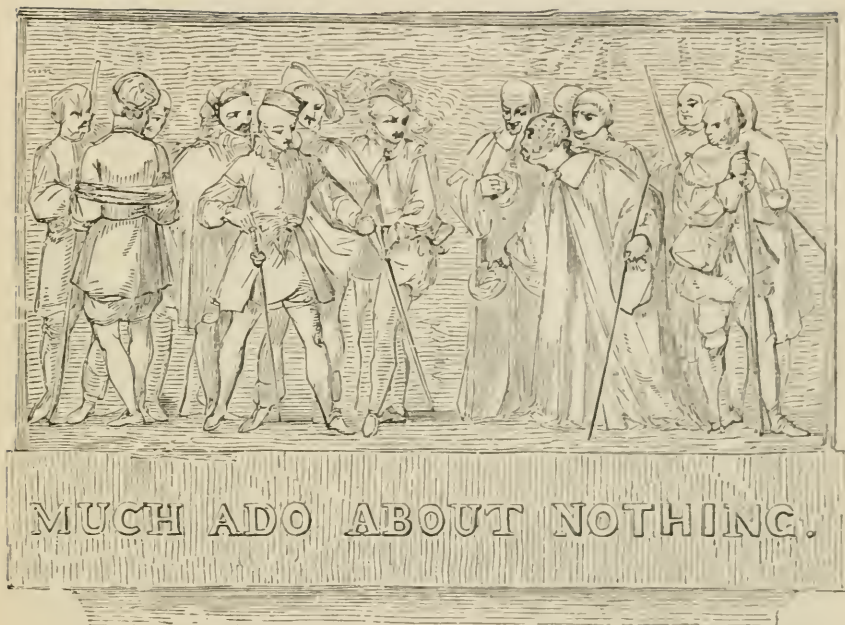 MUCH ADO ABOUT NOTHING.